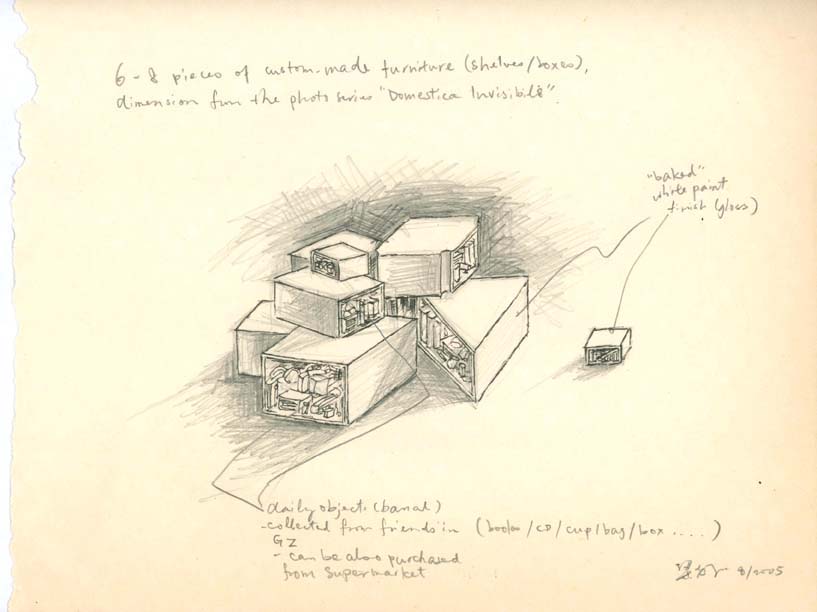 6 - 8 pieces of custom-made furniture (shelves/boxes),
dimension from the photo series "Domestica Invisibile".
"baked"
white paint
finish (gloss)
daily objects (banal)
- collected from friends in (books/CD/cup/bag/box ....)
GZ
- can be also purchased
from supermarket
8/2005